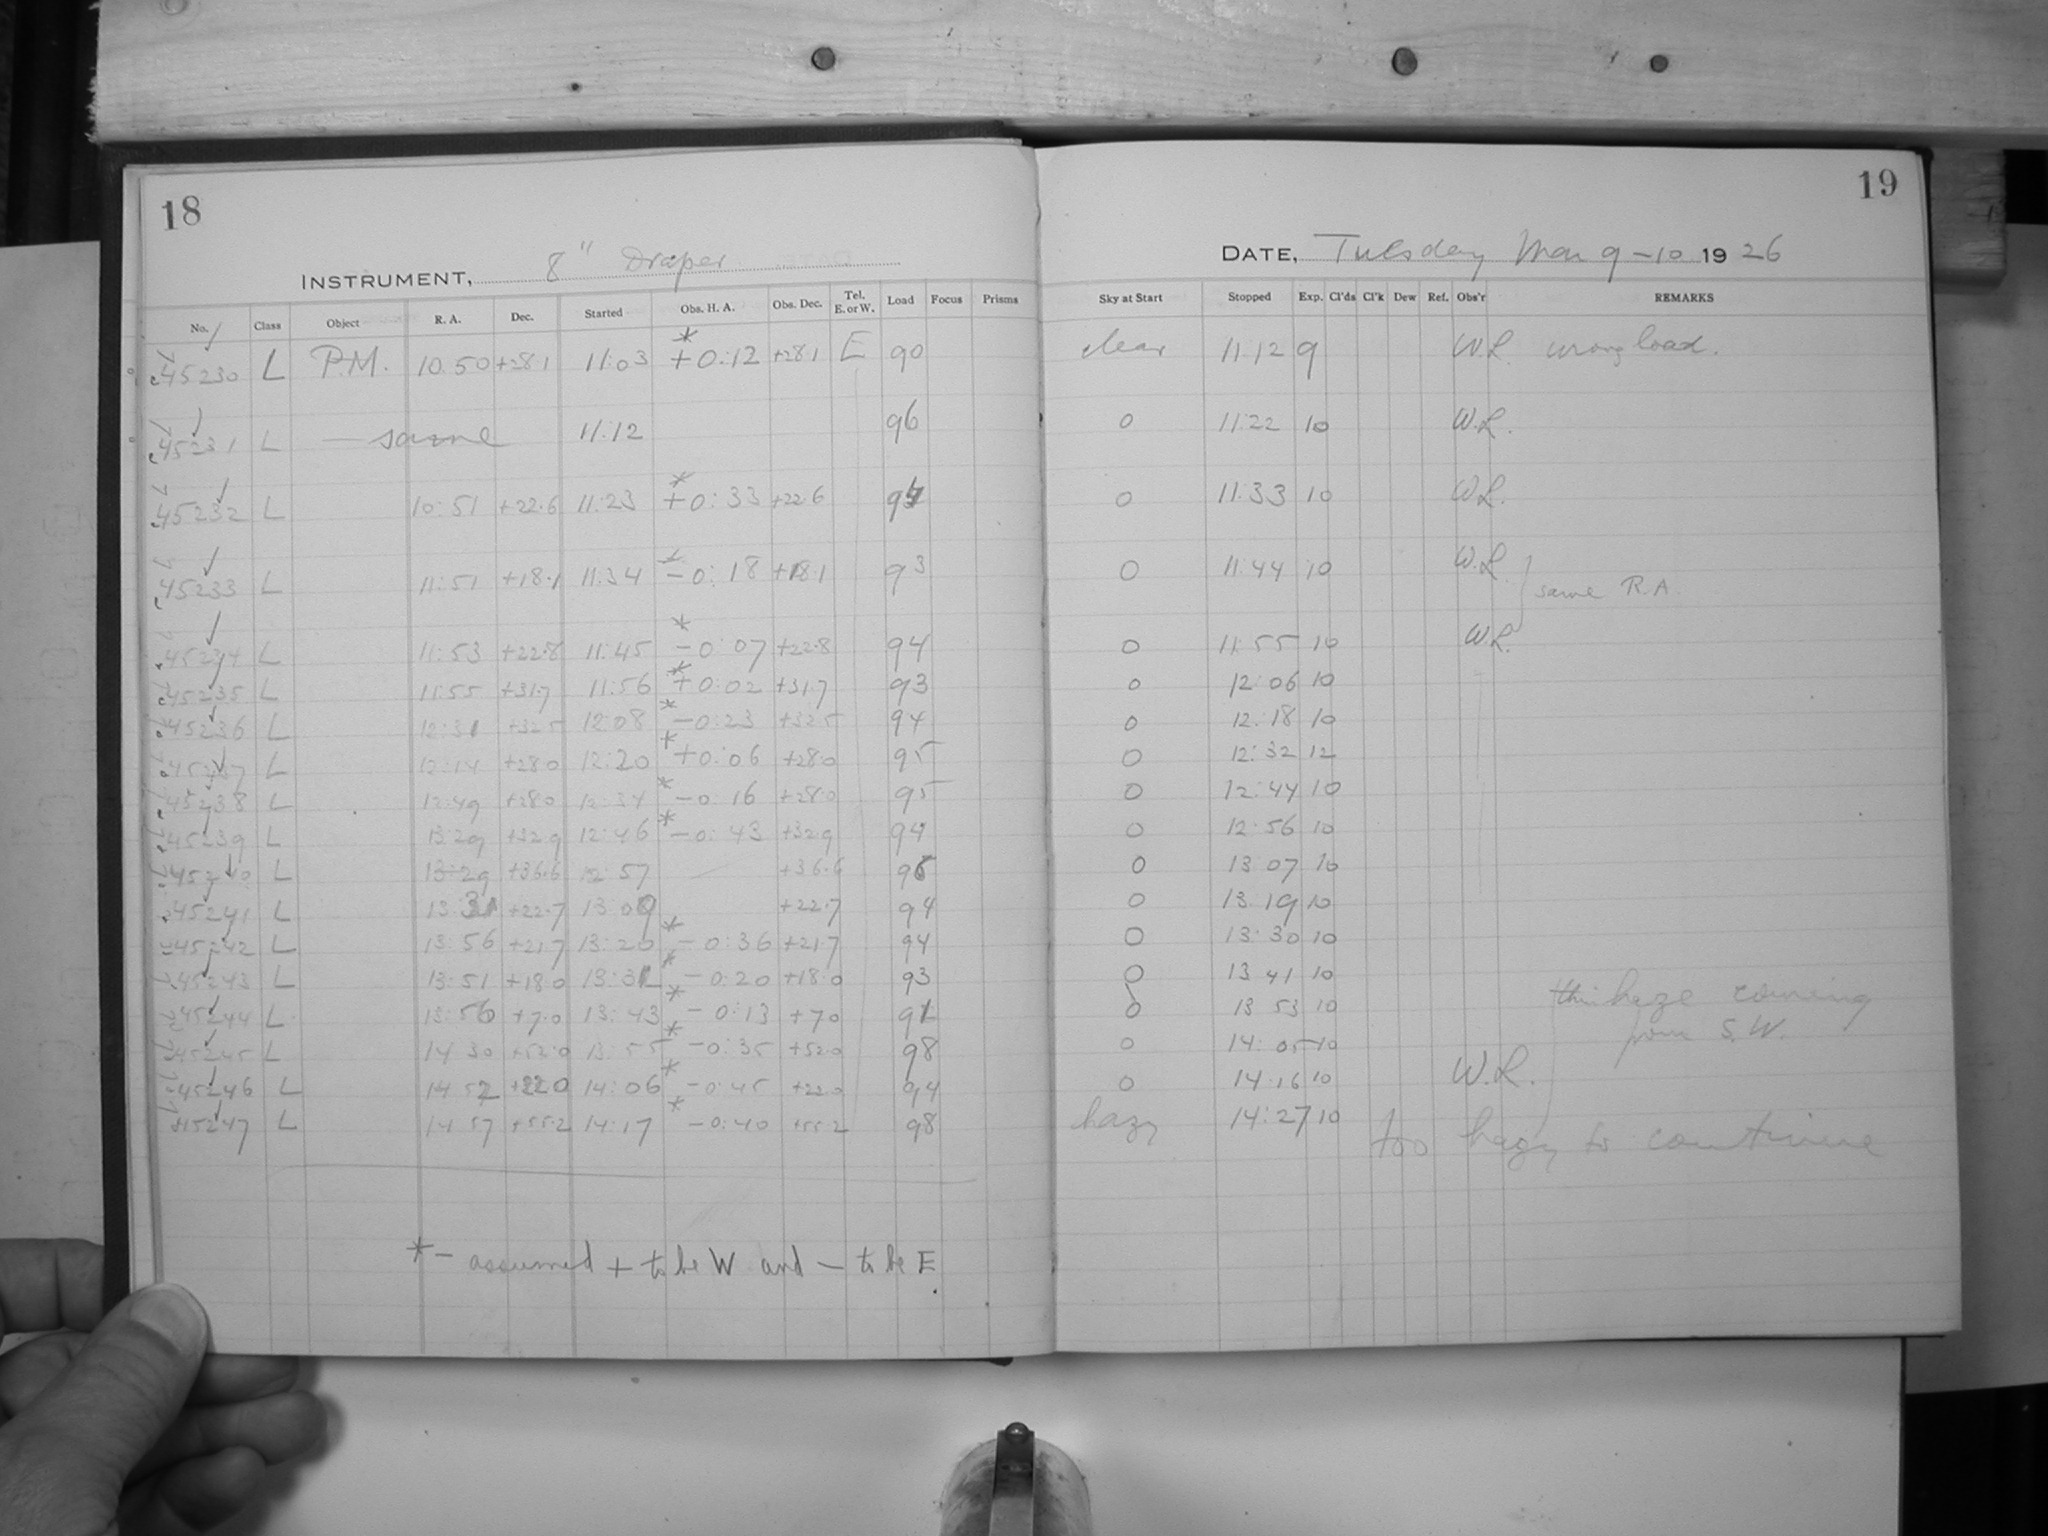 18
INSTRUMENT, 8" Draper
No. Class Object R. A. Dec. Started Obs. H. A. Obs. Dec. Tel. E. or W. Load Focus Prisms
45230 L P.M. 10 50 +28.1 11:03 * +0:12 +28.1 E 90
45231 L — same 11:12 96
45232 L 10:51 +22.6 11:23 * +0:33 +22.6
45233 L 11:51 +18.1 11:34 * -0:18 +18.1 93
45234 L 11:53 +22.8 11:45 * -0:07 +22.8 94
45235 L 11:55 +31.7 11:56 * +0:02 +31.7 93
45236 L 12:31 +32.5 12:08 * -0:23 +32.5 94
45237 L 12:14 +28.0 12:20 * +0:06 +28.0 95
45238 L 12:49 +28.0 12:34 * -0:16 +28.0 95
45239 L 13:29 +32.9 12:46 * -0:43 +32.9 94
45240 L 13:29 +36.6 12:57 +36.6
45241 L 13:31 +22.7 13:09 +22.7 94
45242 L 13:56 +21.7 13:20 * -0:36 +21.7 94
45243 L 13:51 +18.0 * -0:20 +18.0 93
45244 L 13:56 +7.0 13:43 * -0:13 +7.0
45245 L 14 30 +52.0 13:55 * -0:35 +52.0 98
45246 L 14 52 +22.0 14:06 * -0:45 +22.0 94
45247 L 14 57 +55.2 14:17 * -0:40 +55.2 98
*- assumed + to be W and - to be E.
19
DATE, Tuesday Mar 9-10 1926
Sky at Start Stopped Exp. Cl'ds Cl'k Dew Ref. Obs'r REMARKS
clear 11:12 9 W.L. wrong load.
0 11:22 10 W.L.
0 11:33 10 W.L.
0 11:44 10 W.L.
same R.A.
0 11:55 10 W.L.
0 12:06 10
0 12:18 10
0 12:32 12
0 12:44 10
0 12:56 10
0 13 07 10
0 13 19 10
0 13:30 10
0 13 41 10
0 13 53 10 thin haze coming
0 14:05 10 from S.W.
0 14:16 10 W.L.
hazy 14:27 10 too hazy to continue